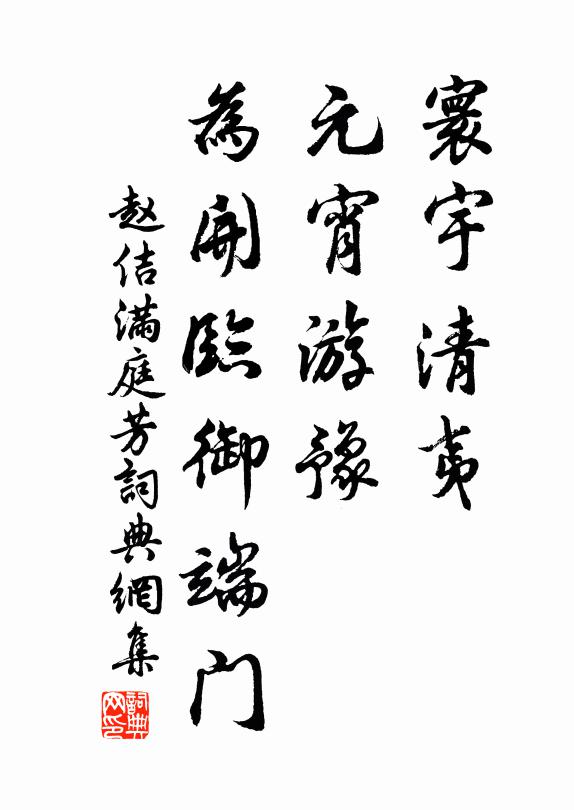 寰宇清夷
元宵游豫
為開臨御端門
赵佶满庭芳詞典網集
詞典网印